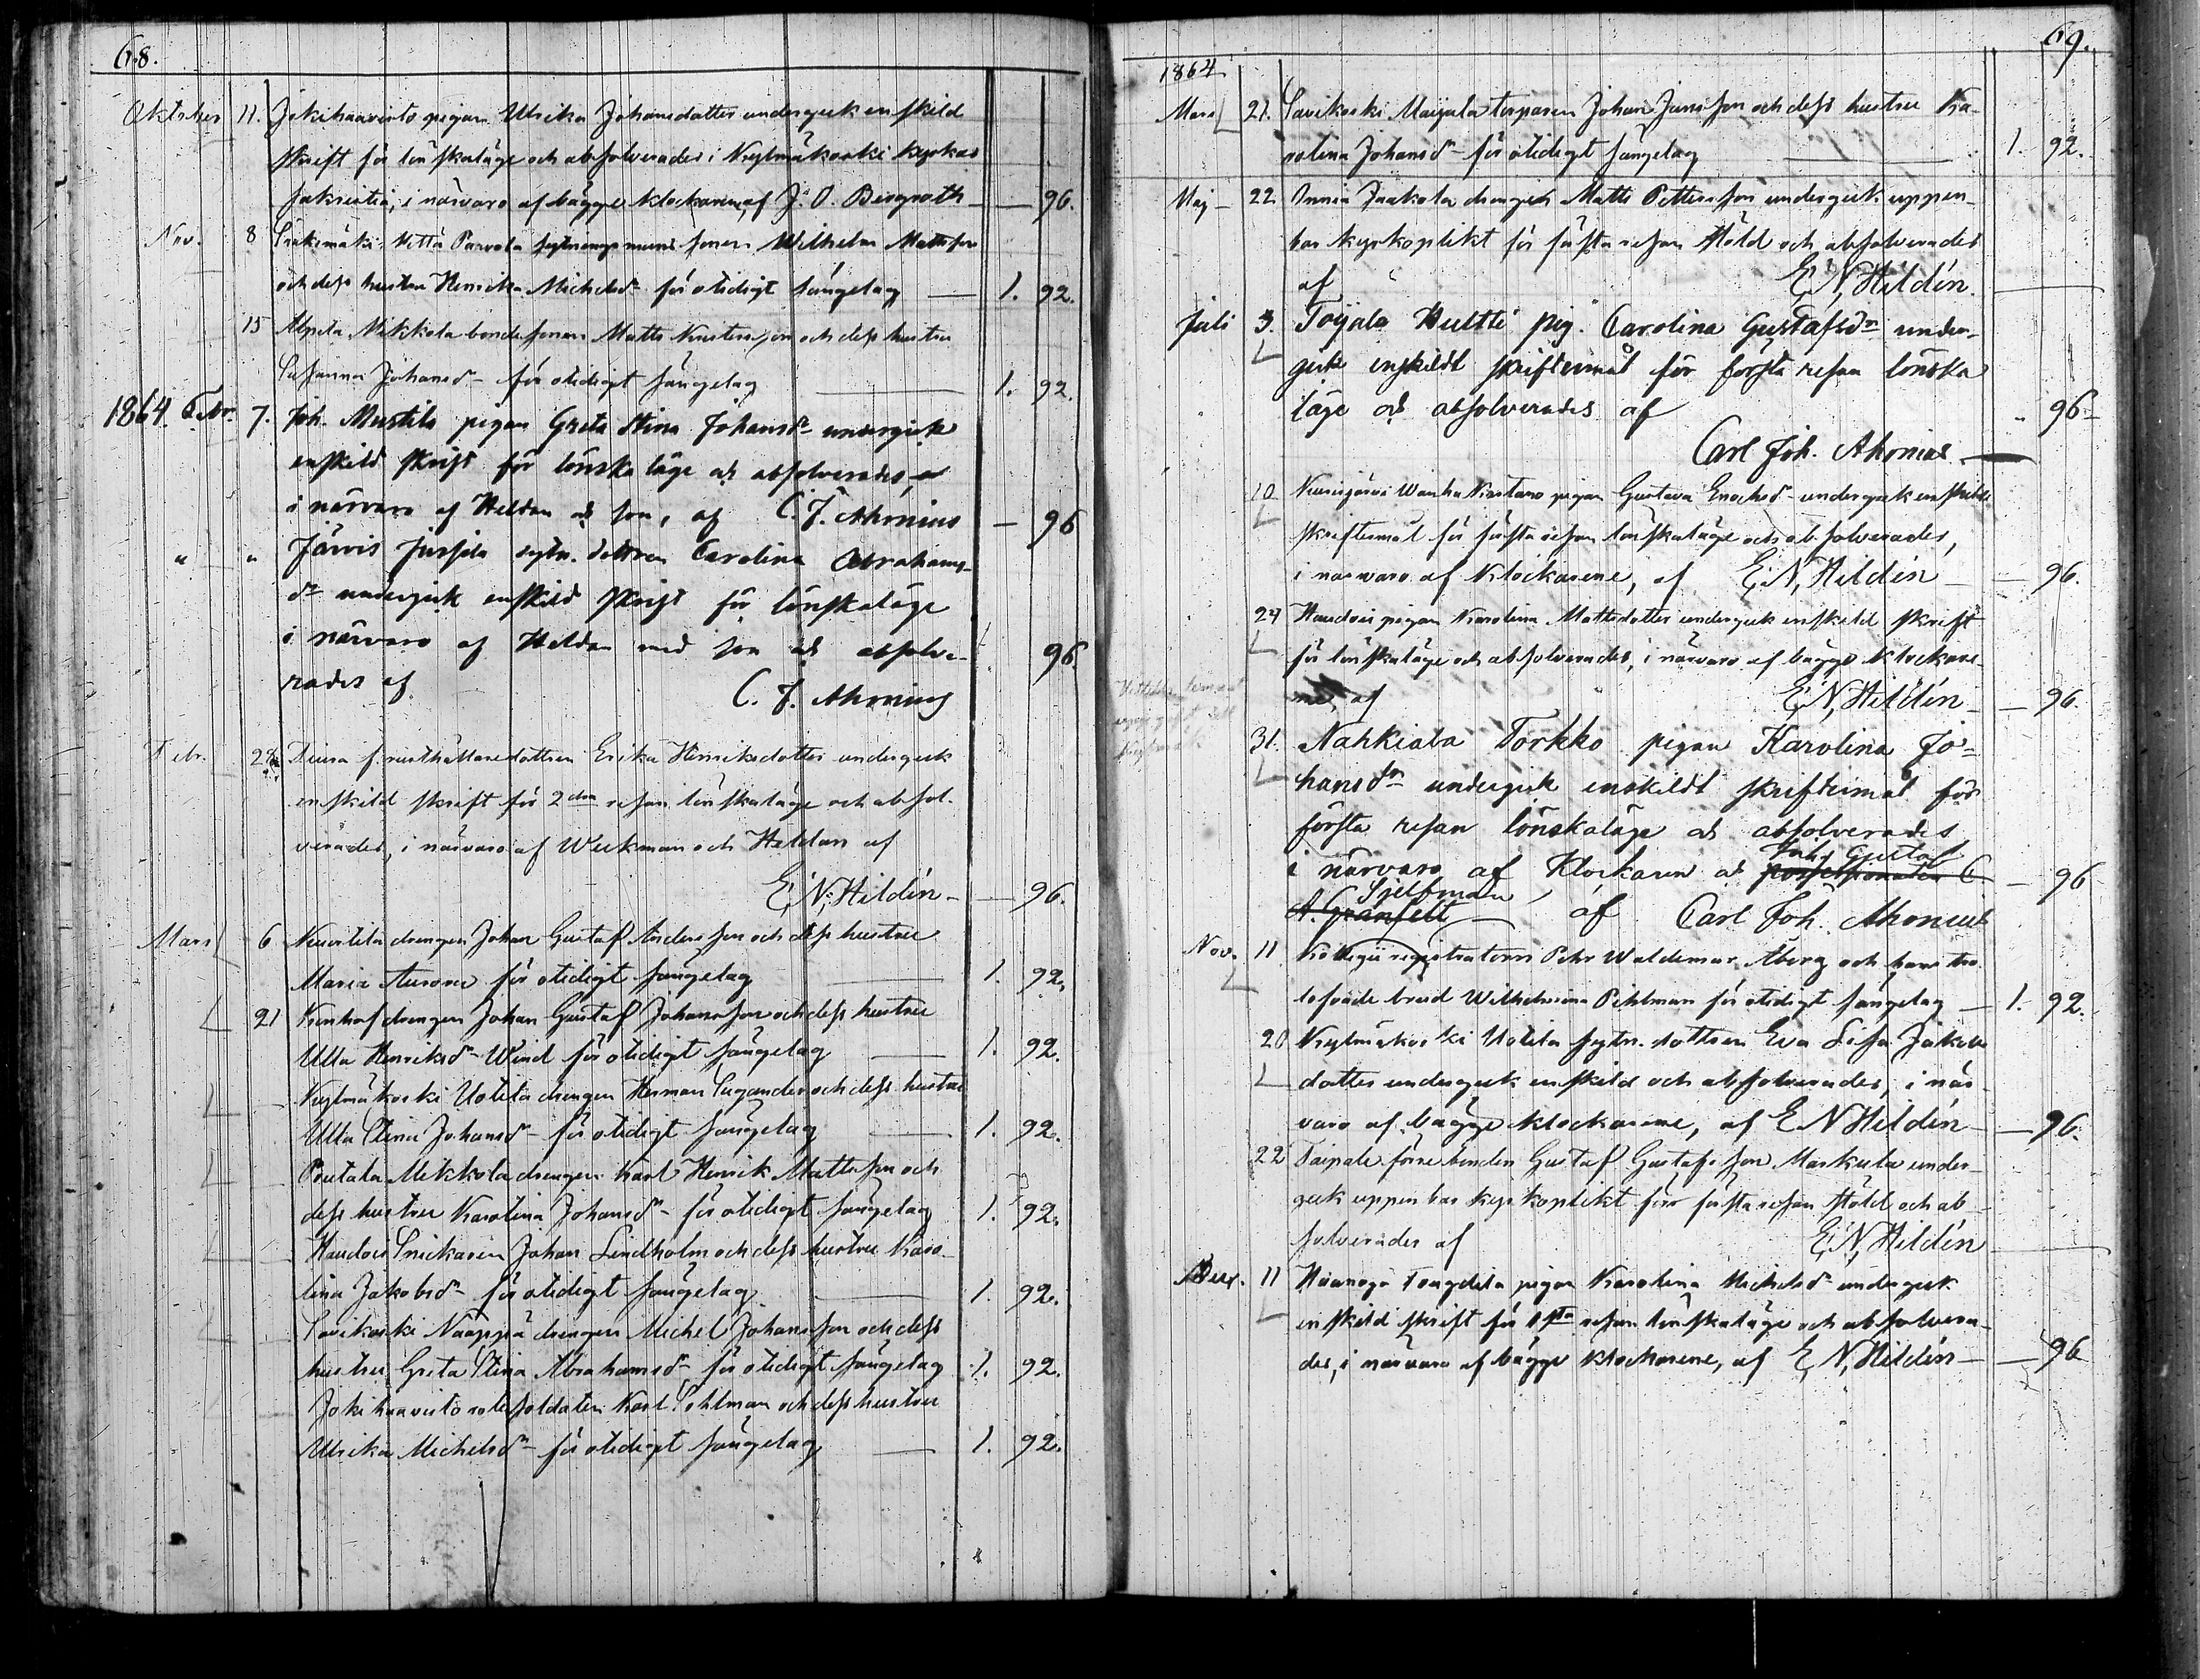 68.
Oktober 11. Jokihaavisto pigan Ulrika Johansdotter undergick enskild
skrift för lönskaläge och absolverades i Kylmäkoski kyrkas
sakristia, i närvaro af bägge klockarena, af J. O. Bergroth — 96.
Nov. 8 Sonen Wilhelm Mattsson
och dess hustru Henrika Michelsdr för otidigt sängelag — 1. 92.
15 Nikkola bondesonen Matts och dess hustru
Susanna Johansdr för otidigt sängelag 1. 92.
1864 Febr. 7. Joh. Mustila pigan Greta Stina Johansdr undergick
enskild skrift för lönska läge och absolverades,
i närvaro af Heldan och son, af C. J. Ahonius — 96
" " Järvis Jussila dottren Carolina Abrahams-
dr undergick enskild skrift för lönskaläge
i närvaro af Heldan med son och absolve- 96.
rades af C. J. Ahonius
Febr. 28 f. rusthållaredottren Erika Henriksdotter undergick
enskild skrift för 2dra resan lönskaläge och absol-
verades, i närvaro af Weckman och Heldan af
E. N. Hildén — 96.
Mars 6 drengen Johan Gustaf Andersson och dess hustru
Maria Aurora för otidigt sängelag 1. 92.
21 drengen Johan Gustaf Johansson och dess hustru
Ulla Henriksdr Wind för otidigt sängelag — 1. 92.
Kylmäkoski Uotila drengen Herman Sagander och dess hustru
Ulla Stina Johansdr för otidigt sängelag — 1. 92.
Pertala Mikkola drengen Karl Henrik Mattsson och
dess hustru Karolina Johansdr för otidigt sängelag 1. 92.
Haudois Snickaren Johan Lindholm och dess hustru Karo-
lina Jakobsdr för otidigt sängelag — 1. 92.
Savikoski Nääppä drengen Michel Johansson och dess
hustru Greta Stina Abrahamsdr för otidigt sängelag 1. 92.
Jokihaavisto rotesoldaten Karl Pohlman och dess hustru
Ulrika Michelsdr för otidigt sängelag — 1. 92.
69.
1864
Mars 21. Savikoski Maijala torparen Johan Jansson och dess hustru Ka-
rolina Johansdr för otidigt sängelag — 1. 92.
Maj 22 Jaakola drengen Matts Pettersson undergick uppen-
bar kyrkoplikt för första resan stöld och absolverades
af E. N. Hildén.
Juli 3. Toijala Hultti pig. Carolina Gustafsdr under-
gick enskildt skriftermål för första resan lönska
läge och absolverades af " 96
Carl Joh. Ahonius
10 Wanha pigan Gustava Enochsdr undergick enskildt
skriftermål för första resan lönskaläge och absolverades,
i närvaro af klockarene, af E. N. Hildén — 96.
24 Haudois pigan Karolina Mattsdotter undergick enskild skrift
för lönskaläge och absolverades, i närvaro af bägge klockare-
ne, af E. N. Hildén — 96.
31. Nahkiala Torkko pigan Karolina Jo-
hansdr undergick enskildt skriftermål för
första resan lönskaläge och absolverades
Joh. Gustaf
i närvaro af Klockaren och possessionaten C. — 96
Sjelfman
A. Granfelt — af Carl Joh. Ahonius
Nov. 11 Kollegii registratorn Pehr Waldemar Åberg och hans tro-
lofvade brud Wilhelmina Pihlman för otidigt sängelag — 1. 92.
20 Kylmäkoski Uotila sytn. dottren Eva Lisa Jakobs
dotter undergick enskild och absolverades, i när-
varo af bägge klockarene, af E N Hildén — 96.
22 Taipale förre bonden Gustaf Gustafsson Markula under-
gick uppenbar kyrkoplikt för första resan stöld och ab-
solverades af E. N. Hildén
Dec. 11 pigan Karolina Michelsdr undergick
enskild skrift för 1sta resan lönskaläge och absolvera-
des, i närvaro af bägge klockarene, af E. N. Hildén — 96